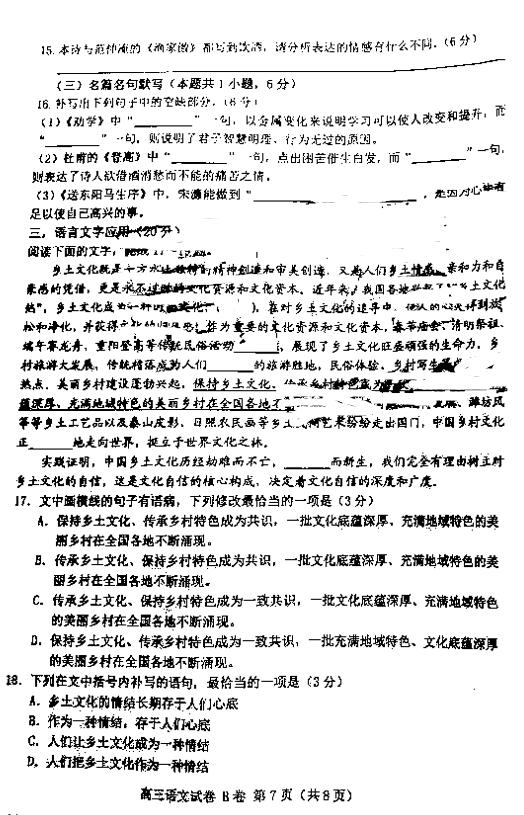 15. 本诗与范仲淹的《渔家傲》都写到饮酒，请分析表达的情感有什么不同。（6分）
（三）名篇名句默写（本题共1小题，6分）
16. 补写出下列句子中的空缺部分。（6分）
（1）《劝学》中“________”一句，以金属变化来说明学习可以使人改变和提升，而
“________”一句，则说明了君子智慧明達、行为无过的原因。
（2）杜甫的《登高》中“________”一句，点出困苦催生白发，而“________”一句，
则表达了诗人欲借酒消愁而不能的痛苦之情。
（3）《送东阳马生序》中，宋濂能做到“________，是因为心中有
足以使自己高兴的事。
三、语言文字应用（20分）
阅读下面的文字，
乡土文化就是一方水土独特的精神创造和审美创造，又是人们乡土情感、亲和力和自
豪感的凭借，更是永不过时的文化资源和文化资本。近年来，我国各地“乡土文化
热”，乡土文化成为一种（ ），在对乡土文化的追寻中，使人的心灵得到放
松和净化，并获得。作为重要的文化资源和文化资本，春茶庙会、清明祭祖、
端午赛龙舟、重阳登高等传统民俗活动________，展现了乡土文化旺盛顽强的生命力，乡
村旅游大发展，传统村落成为人们________的旅游胜地，民俗体验、乡村写生
热点。美丽乡村建设蓬勃兴起，保持乡土文化、传承乡村特色成为
蕴深厚、充满地域特色的美丽乡村在全国各地不 潍坊风
筝等乡土工艺品以及泰山皮影、日照农民画等乡土 艺术纷纷走出国门，中国乡村文化
正________地走向世界，挺立于世界文化之林。
实践证明，中国乡土文化历经劫难而不亡，________而新生，我们完全有理由树立对
乡土文化的自信，这是文化自信的核心构成，决定着文化自信的深度和广度。
17. 文中画横线的句子有语病，下列修改最恰当的一项是（3分）
A. 保持乡土文化、传承乡村特色成为共识，一批文化底蕴深厚、充满地域特色的美
丽乡村在全国各地不断涌现。
B. 传承乡土文化、保持乡村特色成为共识，一批文化底蕴深厚、充满地域特色的美
丽乡村在全国各地不断涌现。
C. 传承乡土文化、保持乡村特色成为一致共识，一批文化底蕴深厚、充满地域特色
的美丽乡村在全国各地不断涌现。
D. 保持乡土文化、传承乡村特色成为共识，一批充满地域特色、文化底蕴深厚
的美丽乡村在全国各地不断涌现。
18. 下列在文中括号内补写的语句，最恰当的一项是（3分）
A. 乡土文化的情结长期存于人们心底
B. 作为一种情结，存于人们心底
C. 人们让乡土文化成为一种情结
D. 人们把乡土文化作为一种情结
高三语文试卷 B卷 第7页（共8页）